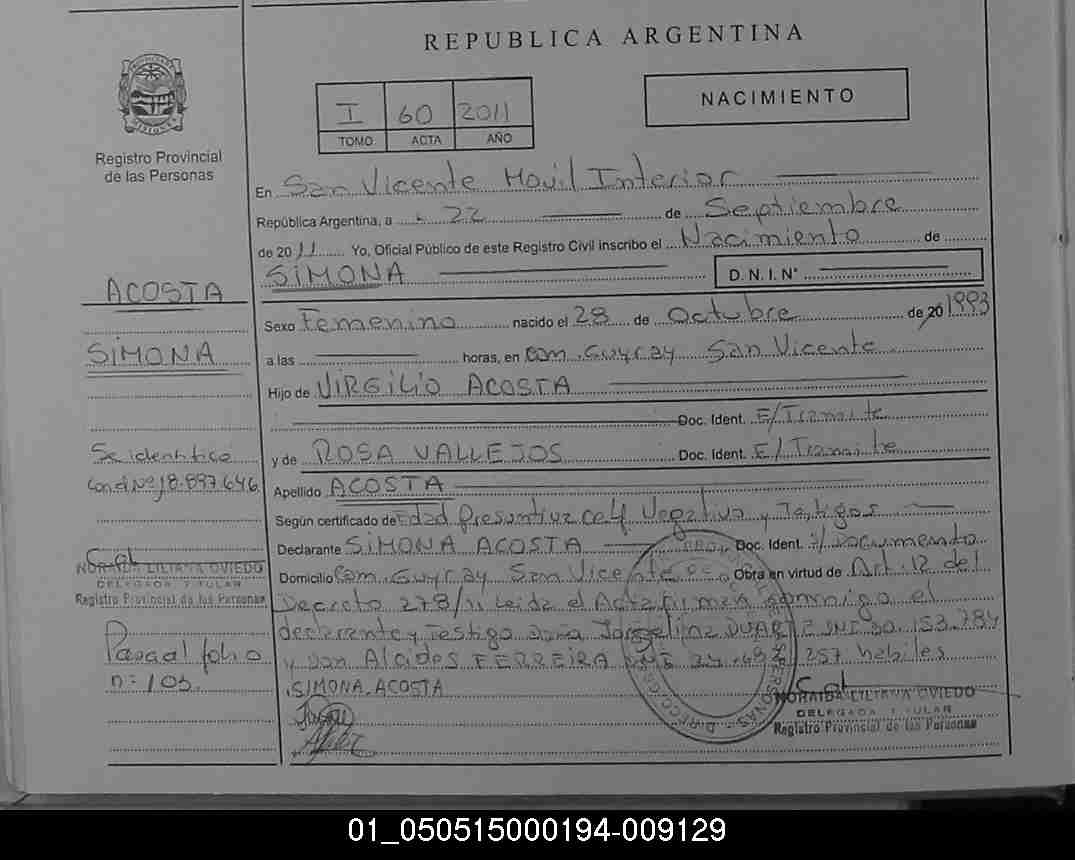 REPUBLICA ARGENTINA
PROVINCIA DE
MISIONES
Registro Provincial
de las Personas
I 60 2011
TOMO ACTA AÑO
NACIMIENTO
En San Vicente Movil Interior
República Argentina, a 22 de Septiembre
de 2011 Yo, Oficial Público de este Registro Civil inscribo el Nacimiento de
SIMONA D.N.I. N°
Sexo Femenino nacido el 28 de Octubre de 20 1993
a las horas, en Com. Guyray San Vicente
Hijo de VIRGILIO ACOSTA
Doc. Ident. E/Tramite
y de ROSA VALLEJOS Doc. Ident. E/Tramite
Apellido ACOSTA
Según certificado de Edad Presuntiva Negativa y Testigos
Declarante SIMONA ACOSTA Doc. Ident. S/Documento
Domicilio Com. Guyray San Vicente Obra en virtud de Art: 12 del
Decreto 278/11 Leida el Acta firman conmigo el
declarante y Testigo Doña Jorgelina DUARTE DNI 30.153.784
y Don Alcides FERREIRA DNI 257 habiles
SIMONA ACOSTA
NORAIDA LILIANA OVIEDO
DELEGADA TITULAR
Registro Provincial de las Personas
ACOSTA
SIMONA
Se identifico
con el Nº 18.897.646
NORAIDA LILIANA OVIEDO
DELEGADA TITULAR
Registro Provincial de las Personas
Pasa al folio
n: 103
01_050515000194-009129